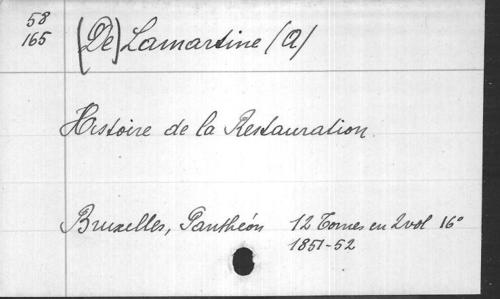 58
165
(De) Lamartine (A)
Histoire de la Restauration.
Bruxelles, Panthéon 12 Tomes en 2 vol 16°
1851-52